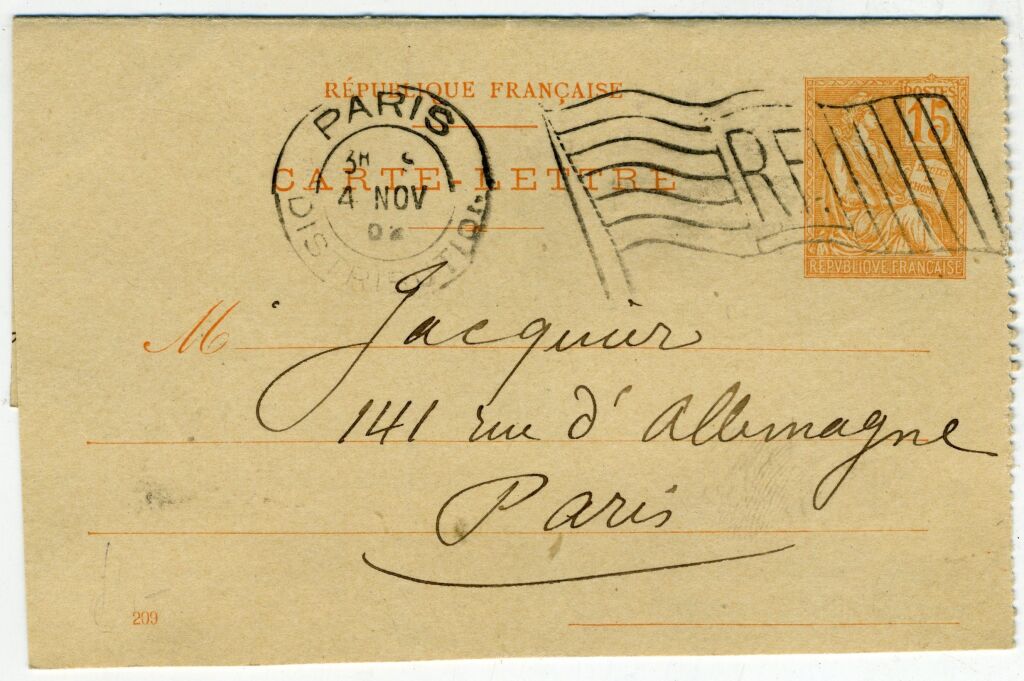 RÉPUBLIQUE FRANÇAISE
CARTE-LETTRE
PARIS
3H
4 NOV
02
DISTRIBUTION
RF
POSTES
15
REPVBLIQVE FRANÇAISE
M Jacquier
141 rue d'Allemagne
Paris
209